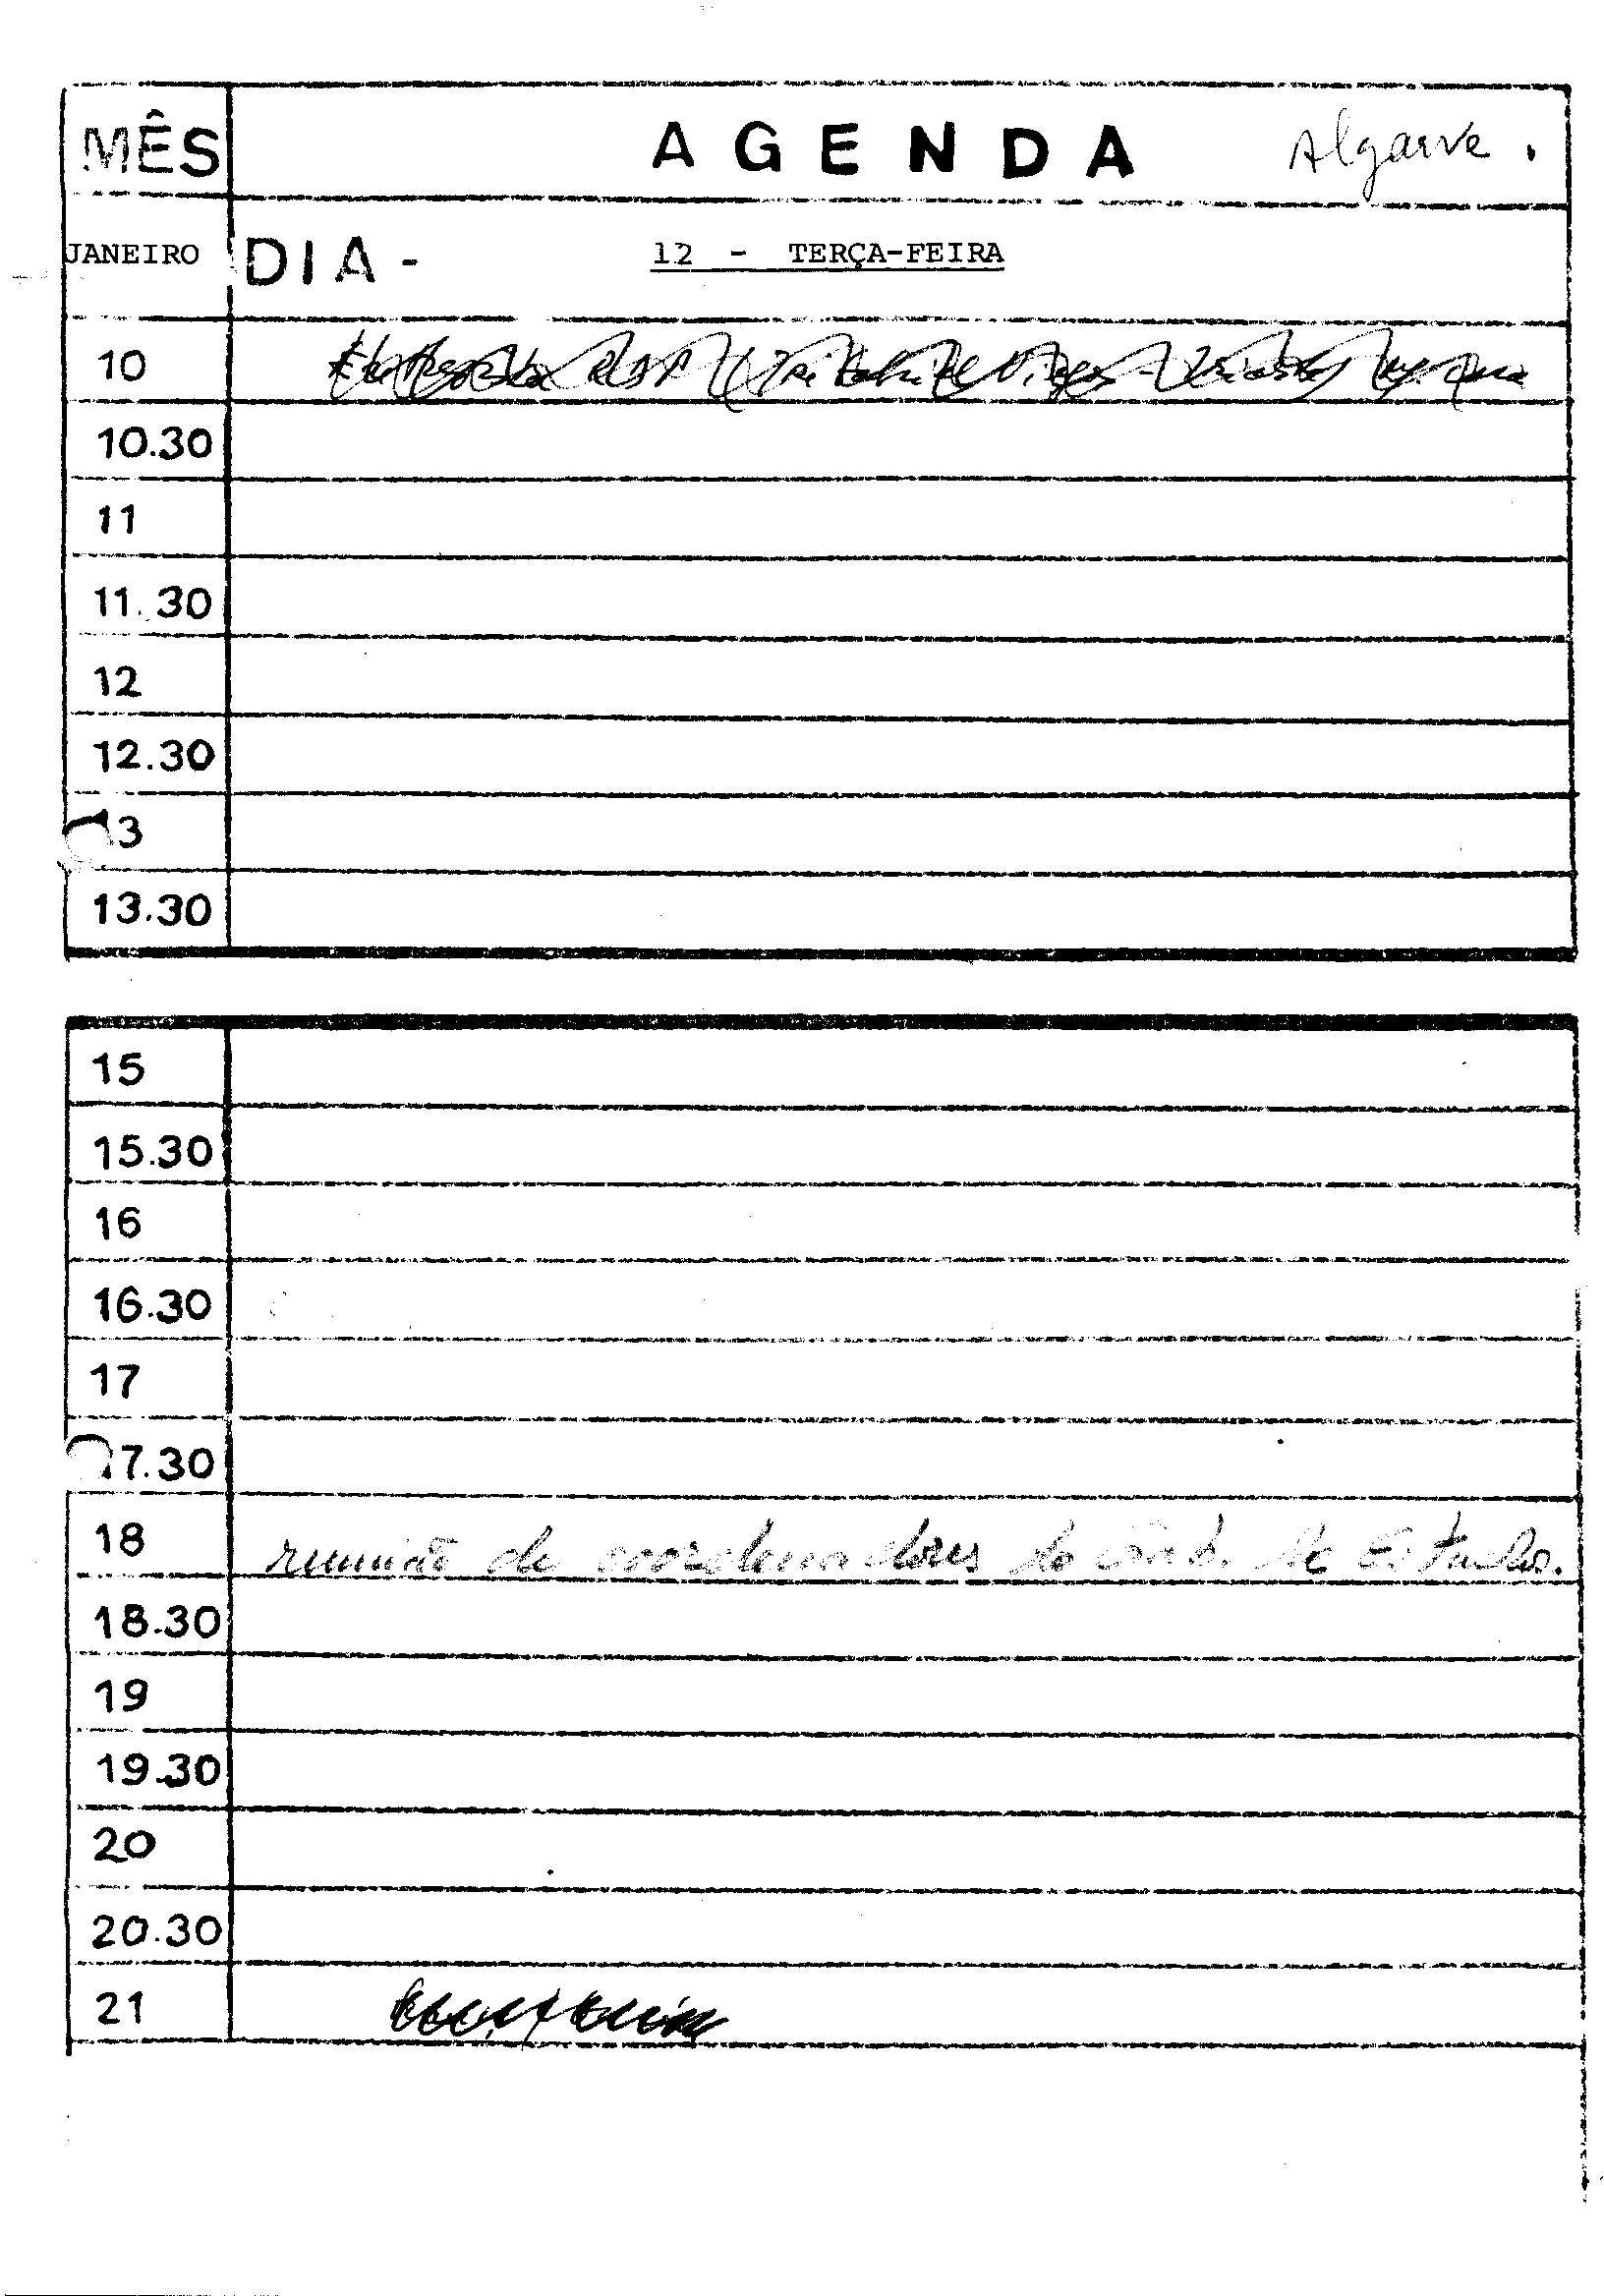 MÊS AGENDA Algarve.
JANEIRO DIA - 12 - TERÇA-FEIRA
10
10.30
11
11.30
12
12.30
13
13.30
15
15.30
16
16.30
17
17.30
18 reunião de coordenadores do Gab. de Estudos.
18.30
19
19.30
20
20.30
21